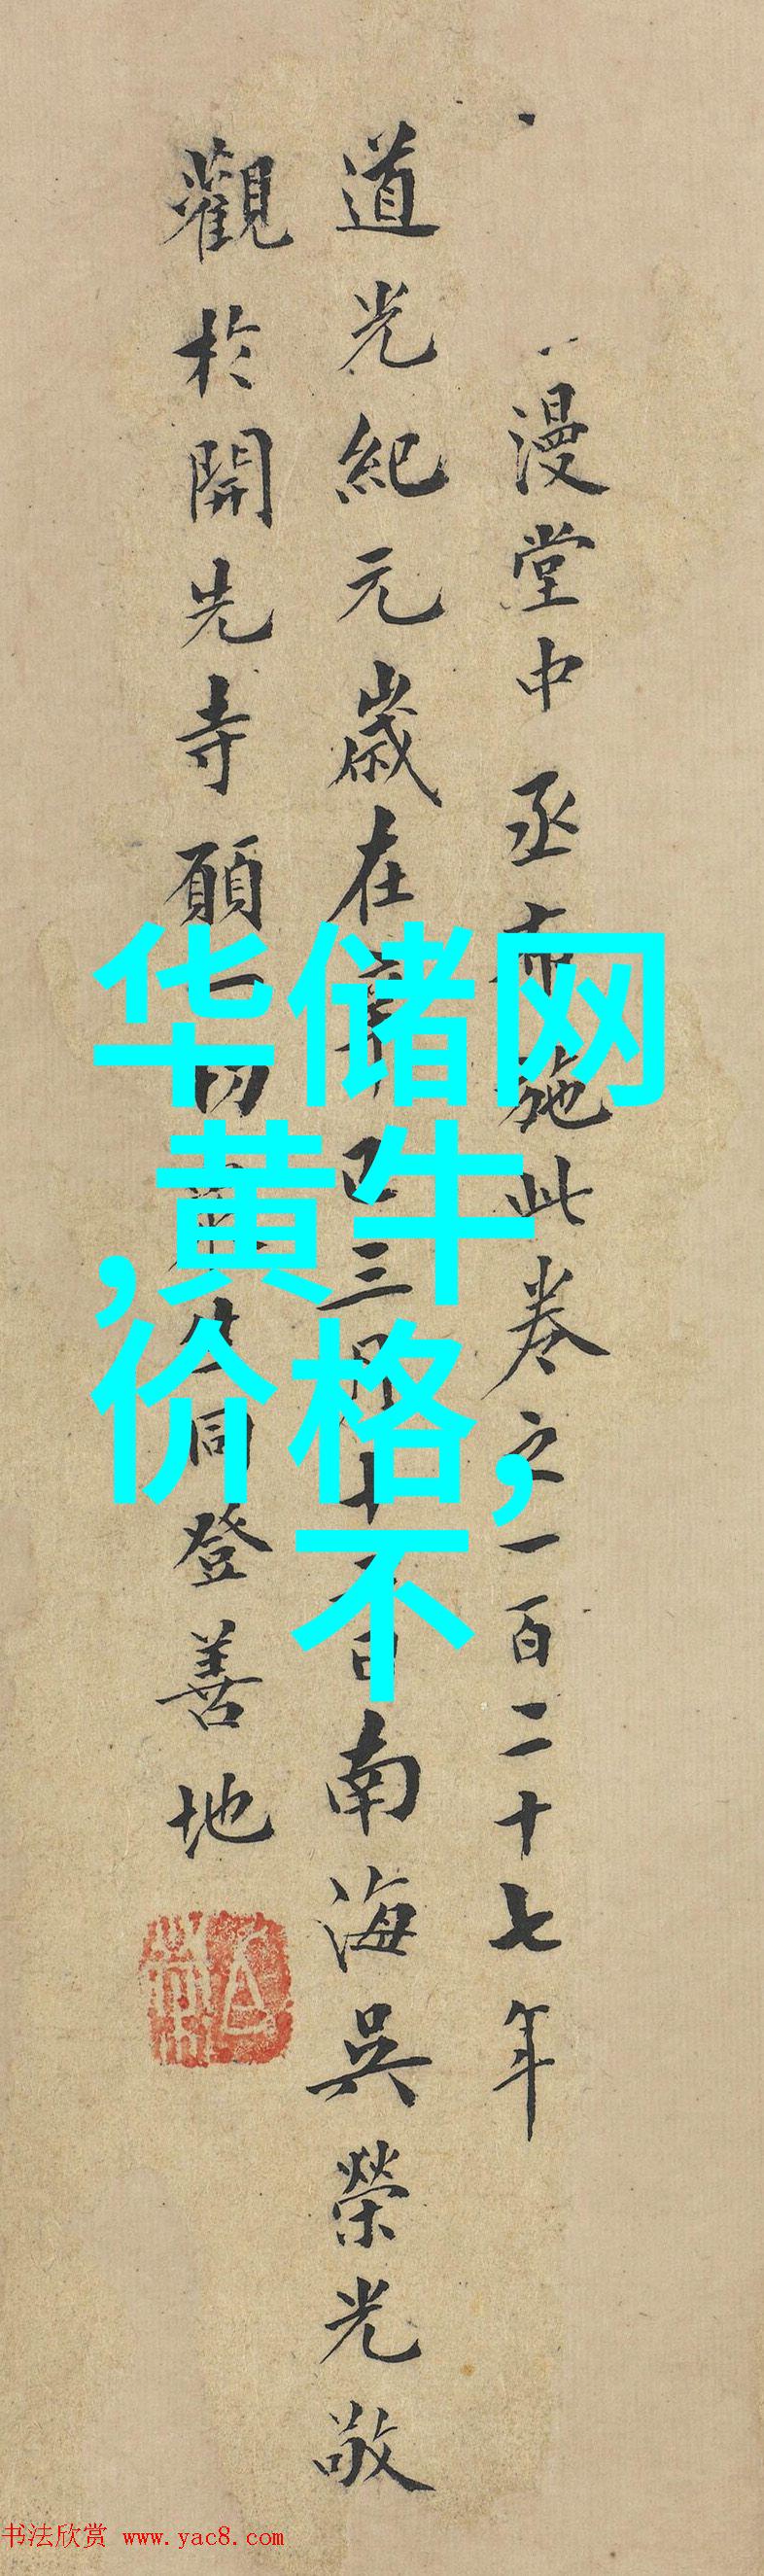 漫堂中丞布施此卷之一百二十七年
道光紀元歲在辛巳三月十日南海吳榮光敬
觀於開先寺願一切眾生同登善地
华储网
,黄牛
价格,
不
书法欣赏 www.yac8.com